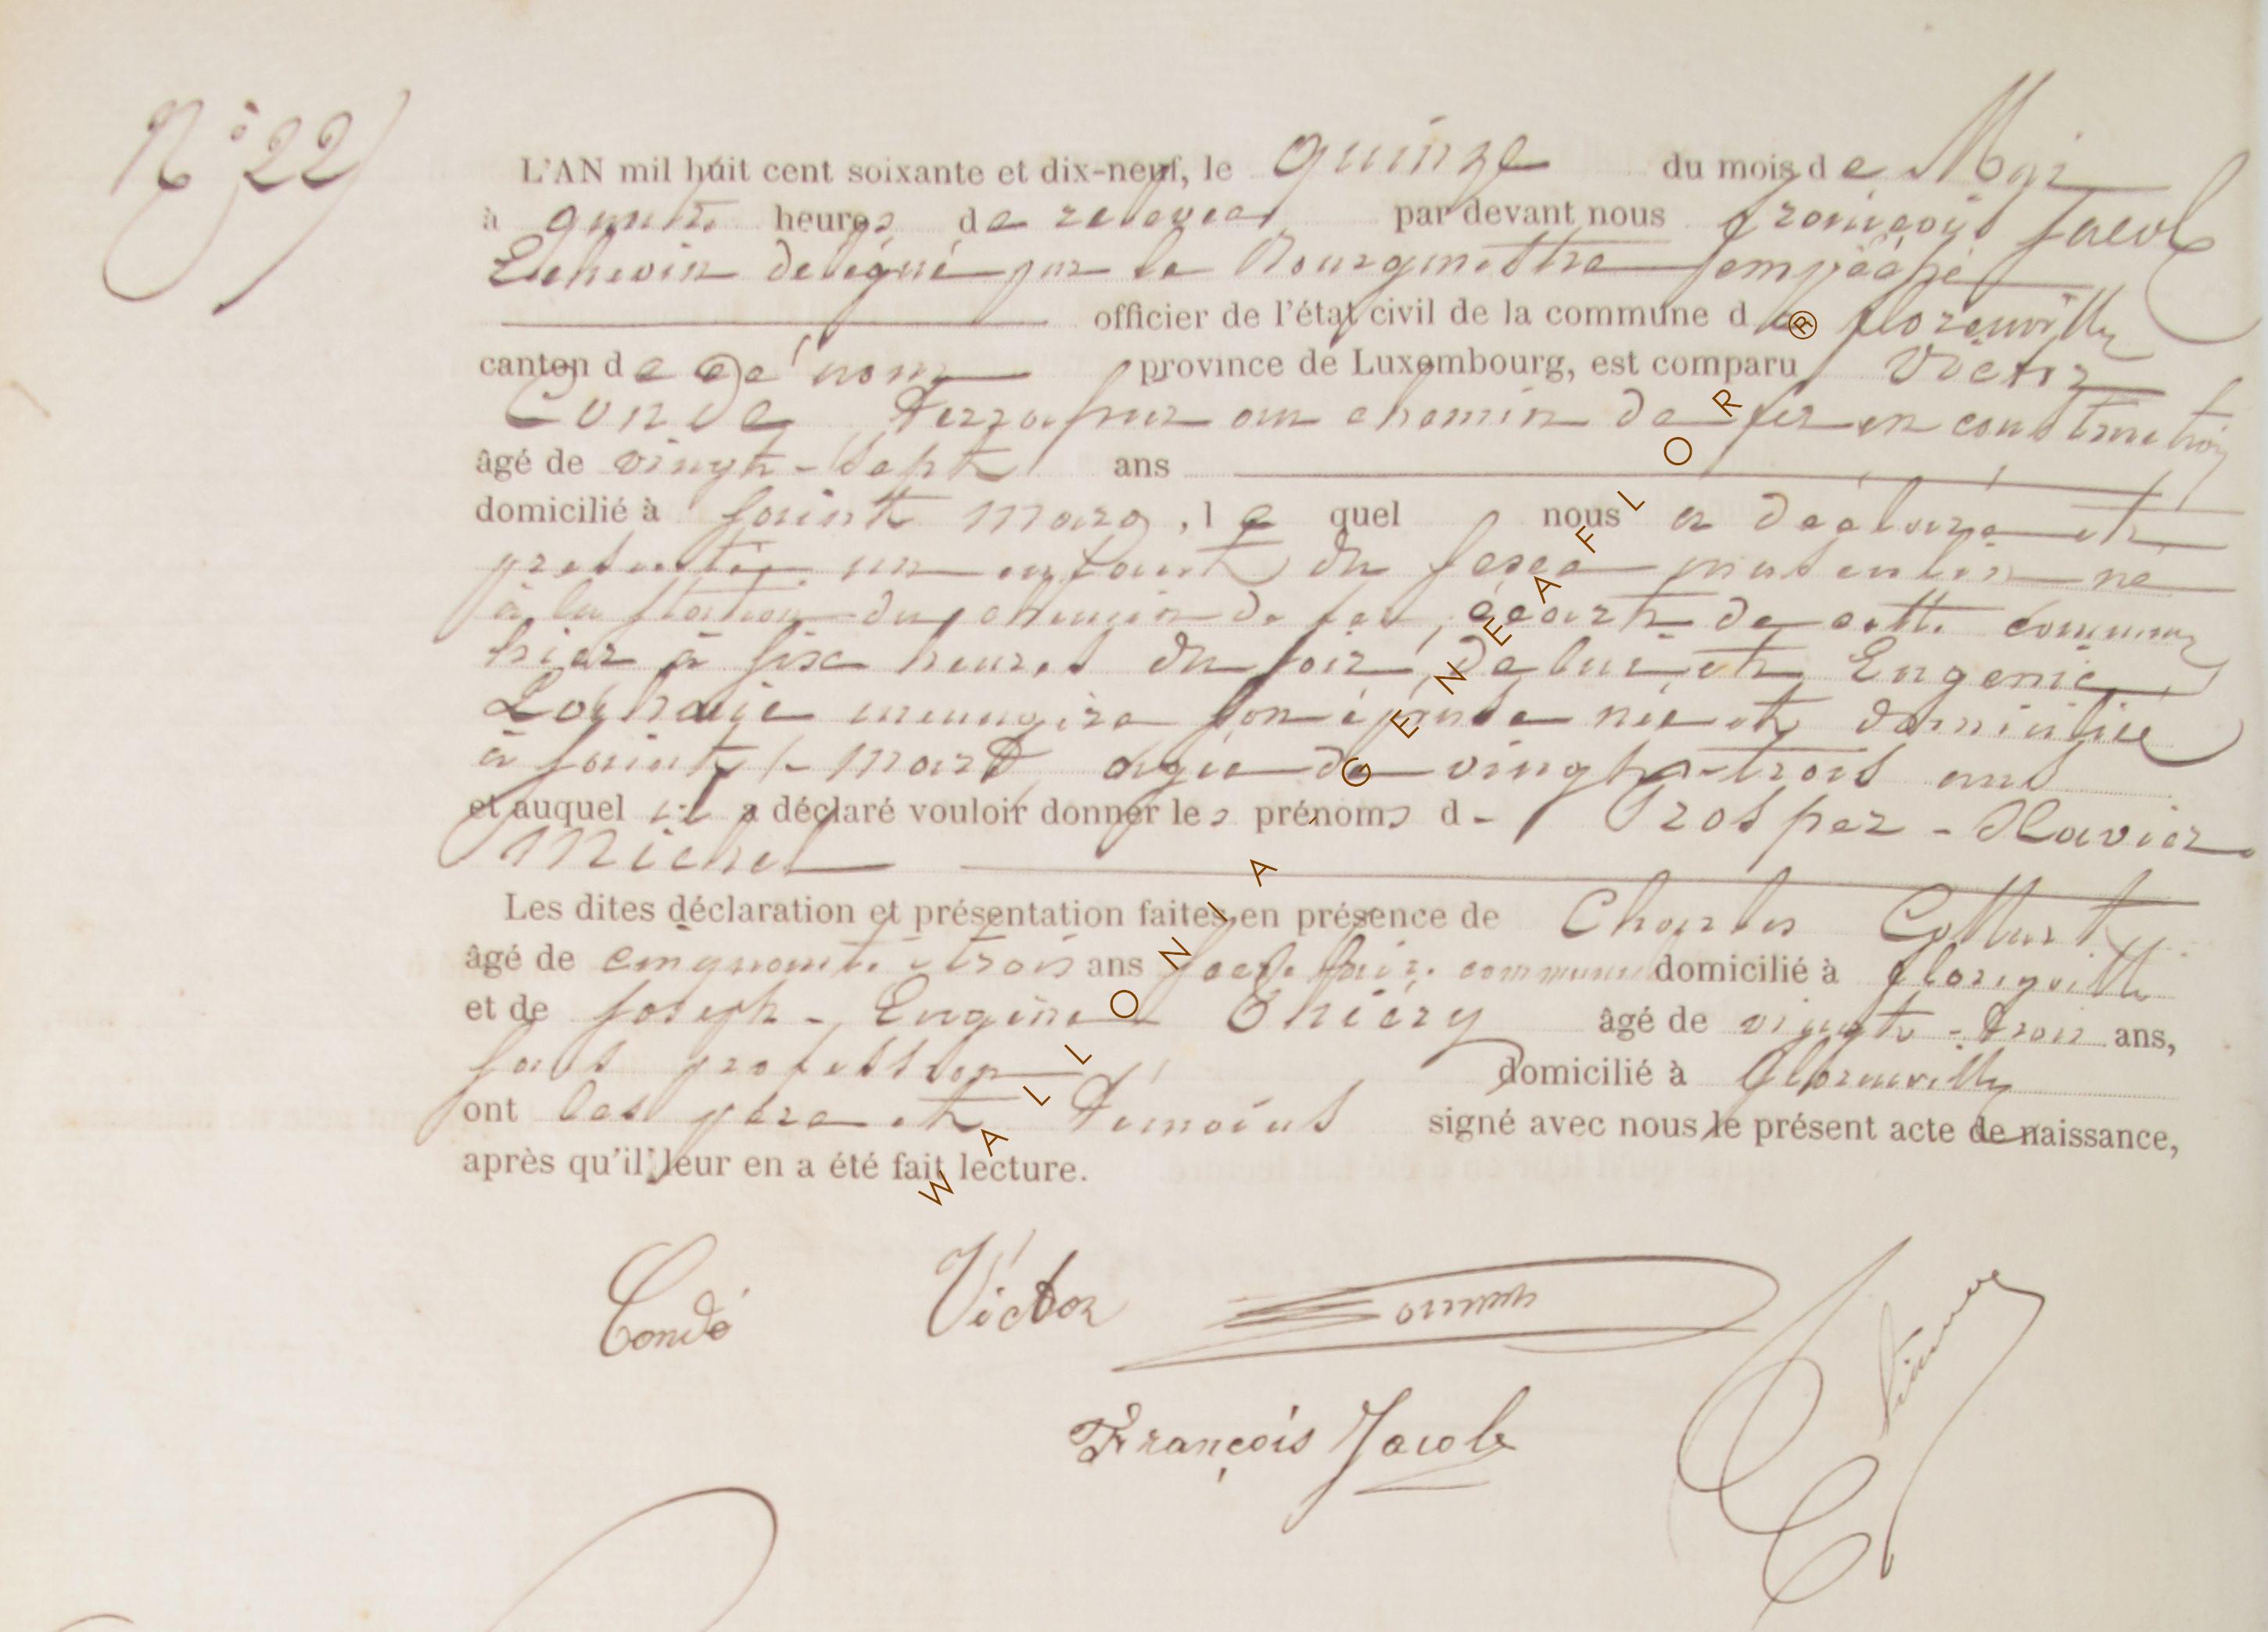 N° 22
L'AN mil huit cent soixante et dix-neuf, le quinze du mois de Mai
à quatre heures de relevée par devant nous François Jacob
Echevin délégué par le Bourgmestre empêché
officier de l'état civil de la commune de Florenville
canton de ce nom province de Luxembourg, est comparu Victor
Condé Terrassier au chemin de fer en construction
âgé de vingt-sept ans
domicilié à Saint Mard, lequel nous a déclaré et
présenté un enfant du sexe masculin né
à la station du chemin de fer, écart de cette commune
hier à six heures du soir, de lui et Eugenie
ménagère son épouse née et domiciliée
à Saint-Mard, âgée de vingt-trois ans
et auquel il a déclaré vouloir donner les prénoms d- Prosper-Xavier
Michel
Les dites déclaration et présentation faites en présence de Charles
âgé de cinquante-trois ans domicilié à Florenville
et de Joseph-Eugène Thiéry âgé de vingt-trois ans,
sans profession domicilié à Florenville
ont les père et témoins signé avec nous le présent acte de naissance,
après qu'il leur en a été fait lecture.
Condé Victor
François Jacob
WALLONIA GENEAFLOR®